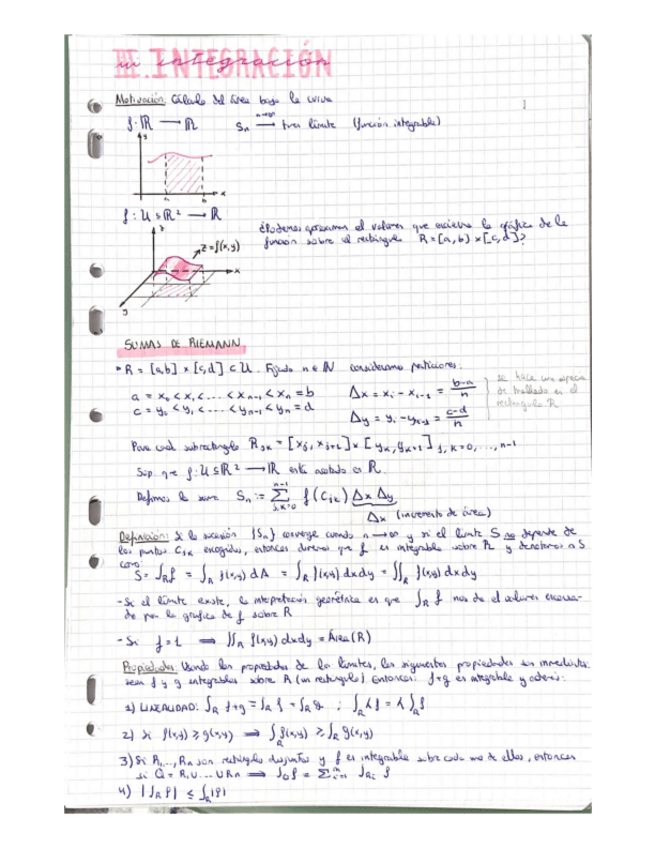 III. INTEGRACIÓN
integración
Motivación: Cálculo del área bajo la curva
1
f: ℝ → ℝ    Sₙ →(n→∞) tiene límite (función integrable)
y
a b x
f: U ⊆ ℝ² → ℝ
¿Podemos aproximar el volumen que encierra la gráfica de la
función sobre el rectángulo R = [a,b] × [c,d]?
z
z = f(x,y)
x
y
SUMAS DE RIEMANN
• R = [a,b] × [c,d] ⊂ U. Fijado n ∈ ℕ consideramos particiones:
a = x₀ < x₁ < ... < xₙ₋₁ < xₙ = b    Δx = xᵢ - xᵢ₋₁ = (b-a)/n
c = y₀ < y₁ < ... < yₙ₋₁ < yₙ = d    Δy = yᵢ - yₖ₋₁ = (c-d)/n
se hace una especie
de mallado en el
rectángulo R
Para cada subrectángulo Rⱼₖ = [xⱼ, xⱼ₊₁] × [yₖ, yₖ₊₁] j, k = 0, ..., n-1
Sup. que f: U ⊆ ℝ² → ℝ está acotada en R.
Definimos la suma Sₙ := Σ_{j,k=0}^{n-1} f(cⱼₖ) Δx Δy
Δx (incremento de área)
Definición: Si la sucesión {Sₙ} converge cuando n → ∞ y si el límite S no depende de
los puntos Cⱼₖ escogidos, entonces diremos que f es integrable sobre R y denotamos a S
como:
S = ∫_R f = ∫_R f(x,y) dA = ∫_R f(x,y) dxdy = ∬_R f(x,y) dxdy
- Si el límite existe, la interpretación geométrica es que ∫_R f nos da el volumen encerra-
do por la gráfica de f sobre R
- Si f = 1 ⟹ ∬_R f(x,y) dxdy = Área(R)
Propiedades: Usando las propiedades de los límites, las siguientes propiedades son inmediatas.
Sean f y g integrables sobre R (un rectángulo). Entonces: f+g es integrable y además:
1) LINEALIDAD: ∫_R f+g = ∫_R f = ∫_R g ; ∫_R λf = λ∫_R f
2) Si f(x,y) ≥ g(x,y) ⟹ ∫_R f(x,y) ≥ ∫_R g(x,y)
3) Si R₁, ..., Rₙ son rectángulos disjuntos y f es integrable sobre cada uno de ellos, entonces
si Q = R₁ ∪ ... ∪ Rₙ ⟹ ∫_Q f = Σ_{i=1}^{n} ∫_{Rᵢ} f
4) |∫_R f| ≤ ∫_R |f|